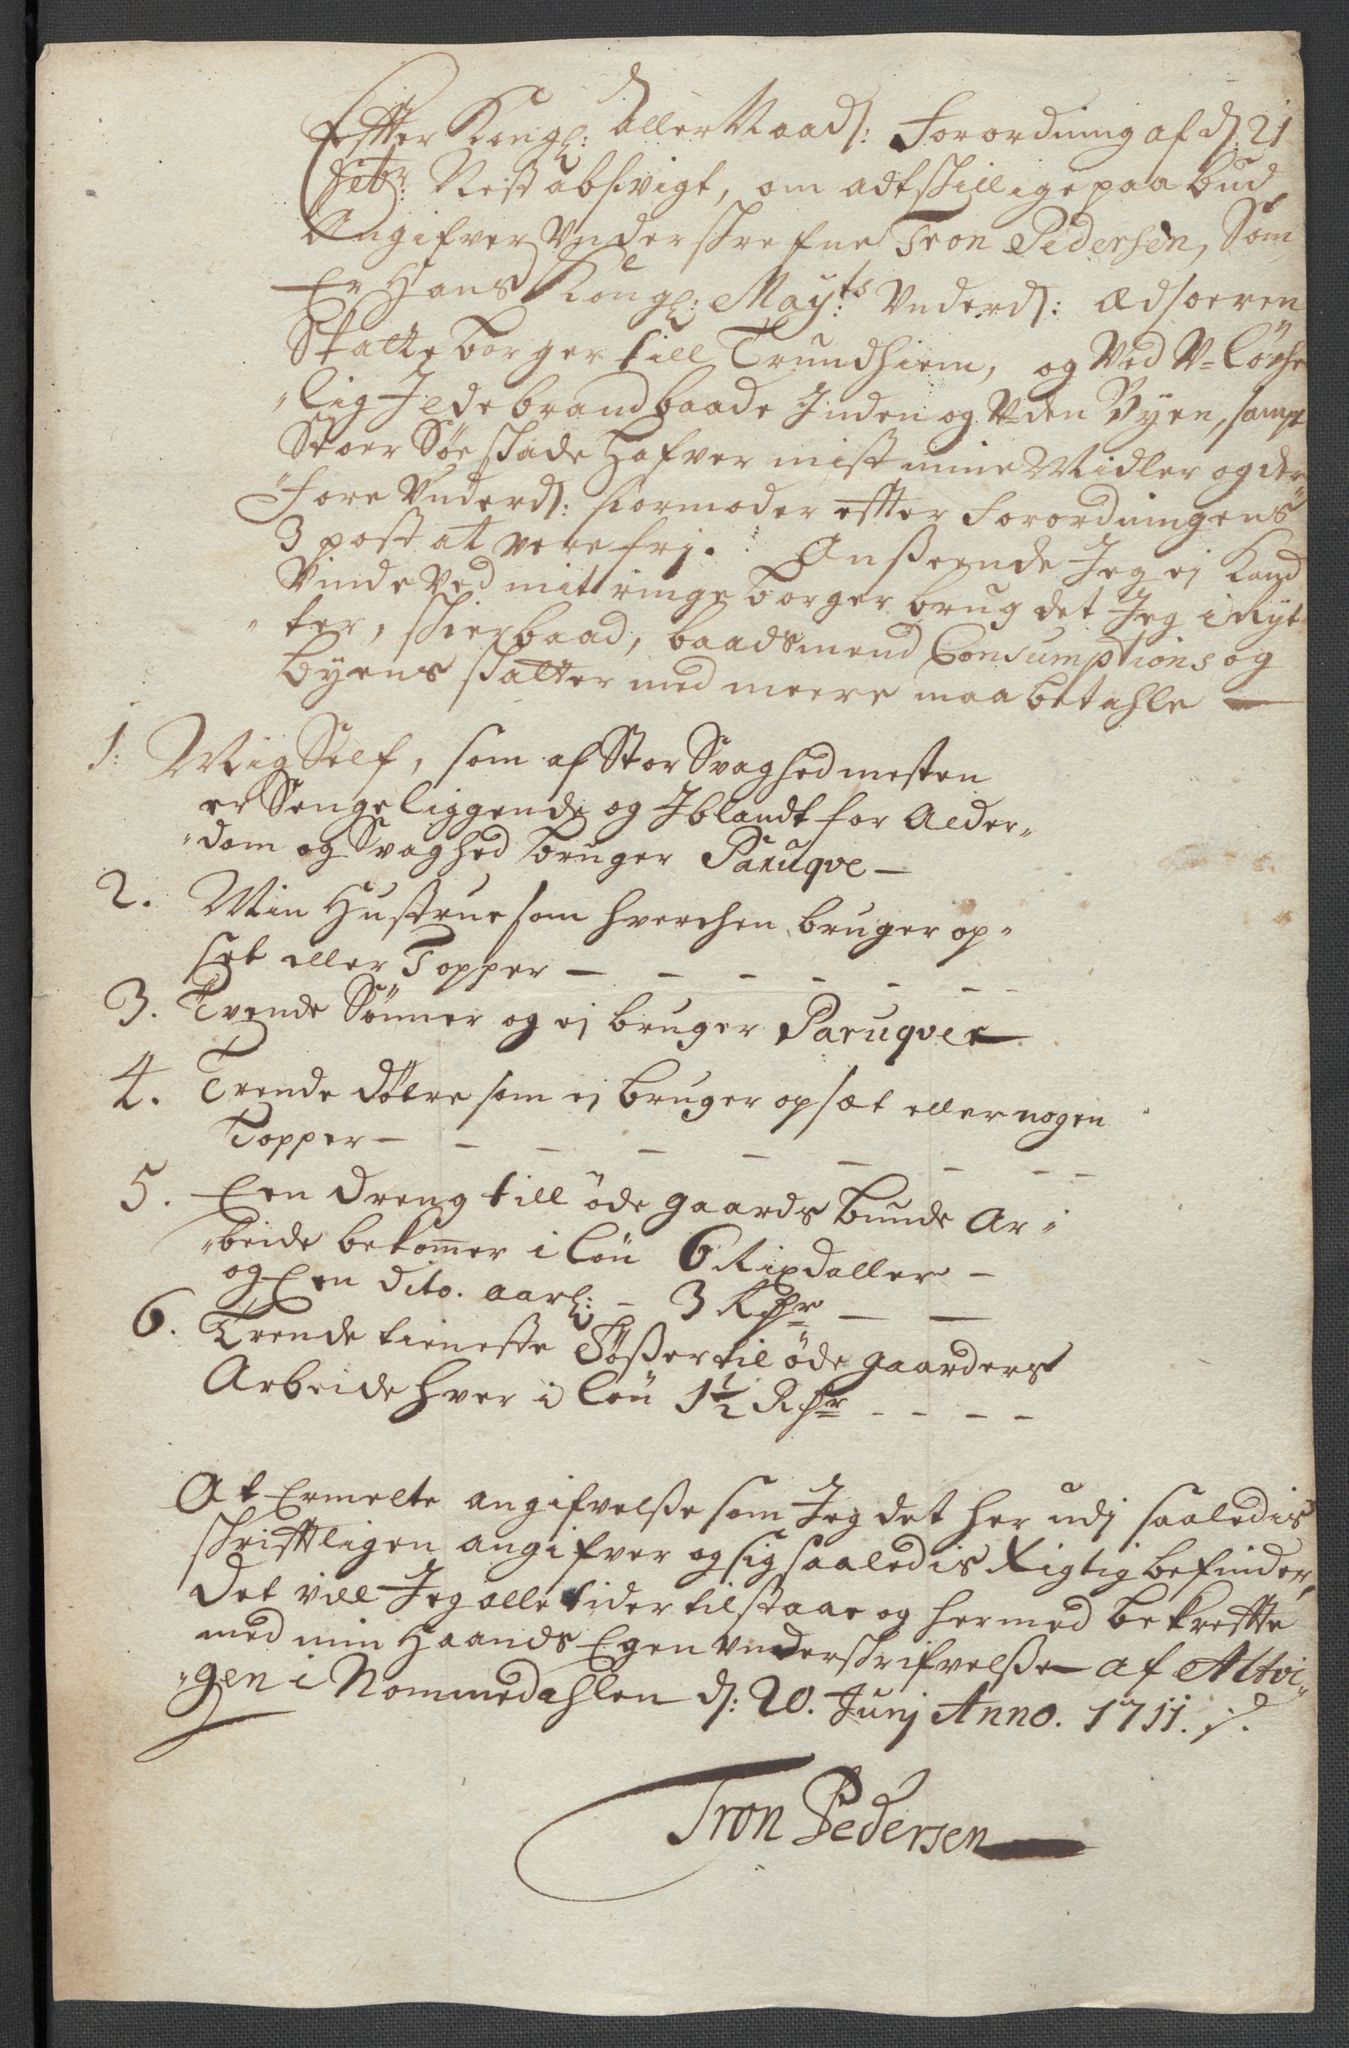 Effter Kongl: aller Naads: Forordning af d: 21
Febr: Nest abhvigt, om adtskillige paa bud
Angifver Underskrefne Tron Pedersen, Som
Er Hans Kongl: Mayts: Underd: ædsoeren
Skatte borger till Trundhiem, og Ved U-
lig Ildebrand baade Inden og Uden Byen, sampt
Stoer Søe skade hafver mist mine Midler og der
fore Underd: formoder effter Forordningens
3 post at vere frj. Anseende Jeg ej kand
Vinde Ved mit ringe borger brug det Jeg i Ryt
ter, skierbaad, baadsmend Consumptions og
Byens skatter med meere maa betahle —
1: Mig Self, som af Stor Svaghed mesten
er Senge liggende og Iblandt for Alder-
dom og Svaghed bruger Paruqve —
2. Min Hustrue som hverchen bruger op-
set eller Topper — — — — — — —
3. Tvende Sønner og ej bruger Paruqver
4. Trende døtre som ej bruger opsæt eller nogen
Topper — — — — — — — — —
5. Een dreng till øde gaards bunde Ar-
beide bekommer i løn 6 Rixdaller —
og Een dito. aarl: — 3 Rdr — —
6. Trende tieneste Tøsser til øde gaarders
Arbeide hver i løn 1½ Rdr - - - -
At Ermelte angifvelsse som Jeg det her udj saaledis
skrifftligen angifver og sig saaledis Rigtig befinder,
det vill Jeg alle tider tilstaae og hermed bekreffte
med min Haands Egen underskrifvelsse af Altvi-
gen i Nommedahlen d: 20. Junj Anno. 1711. ./.
Tron Pedersen